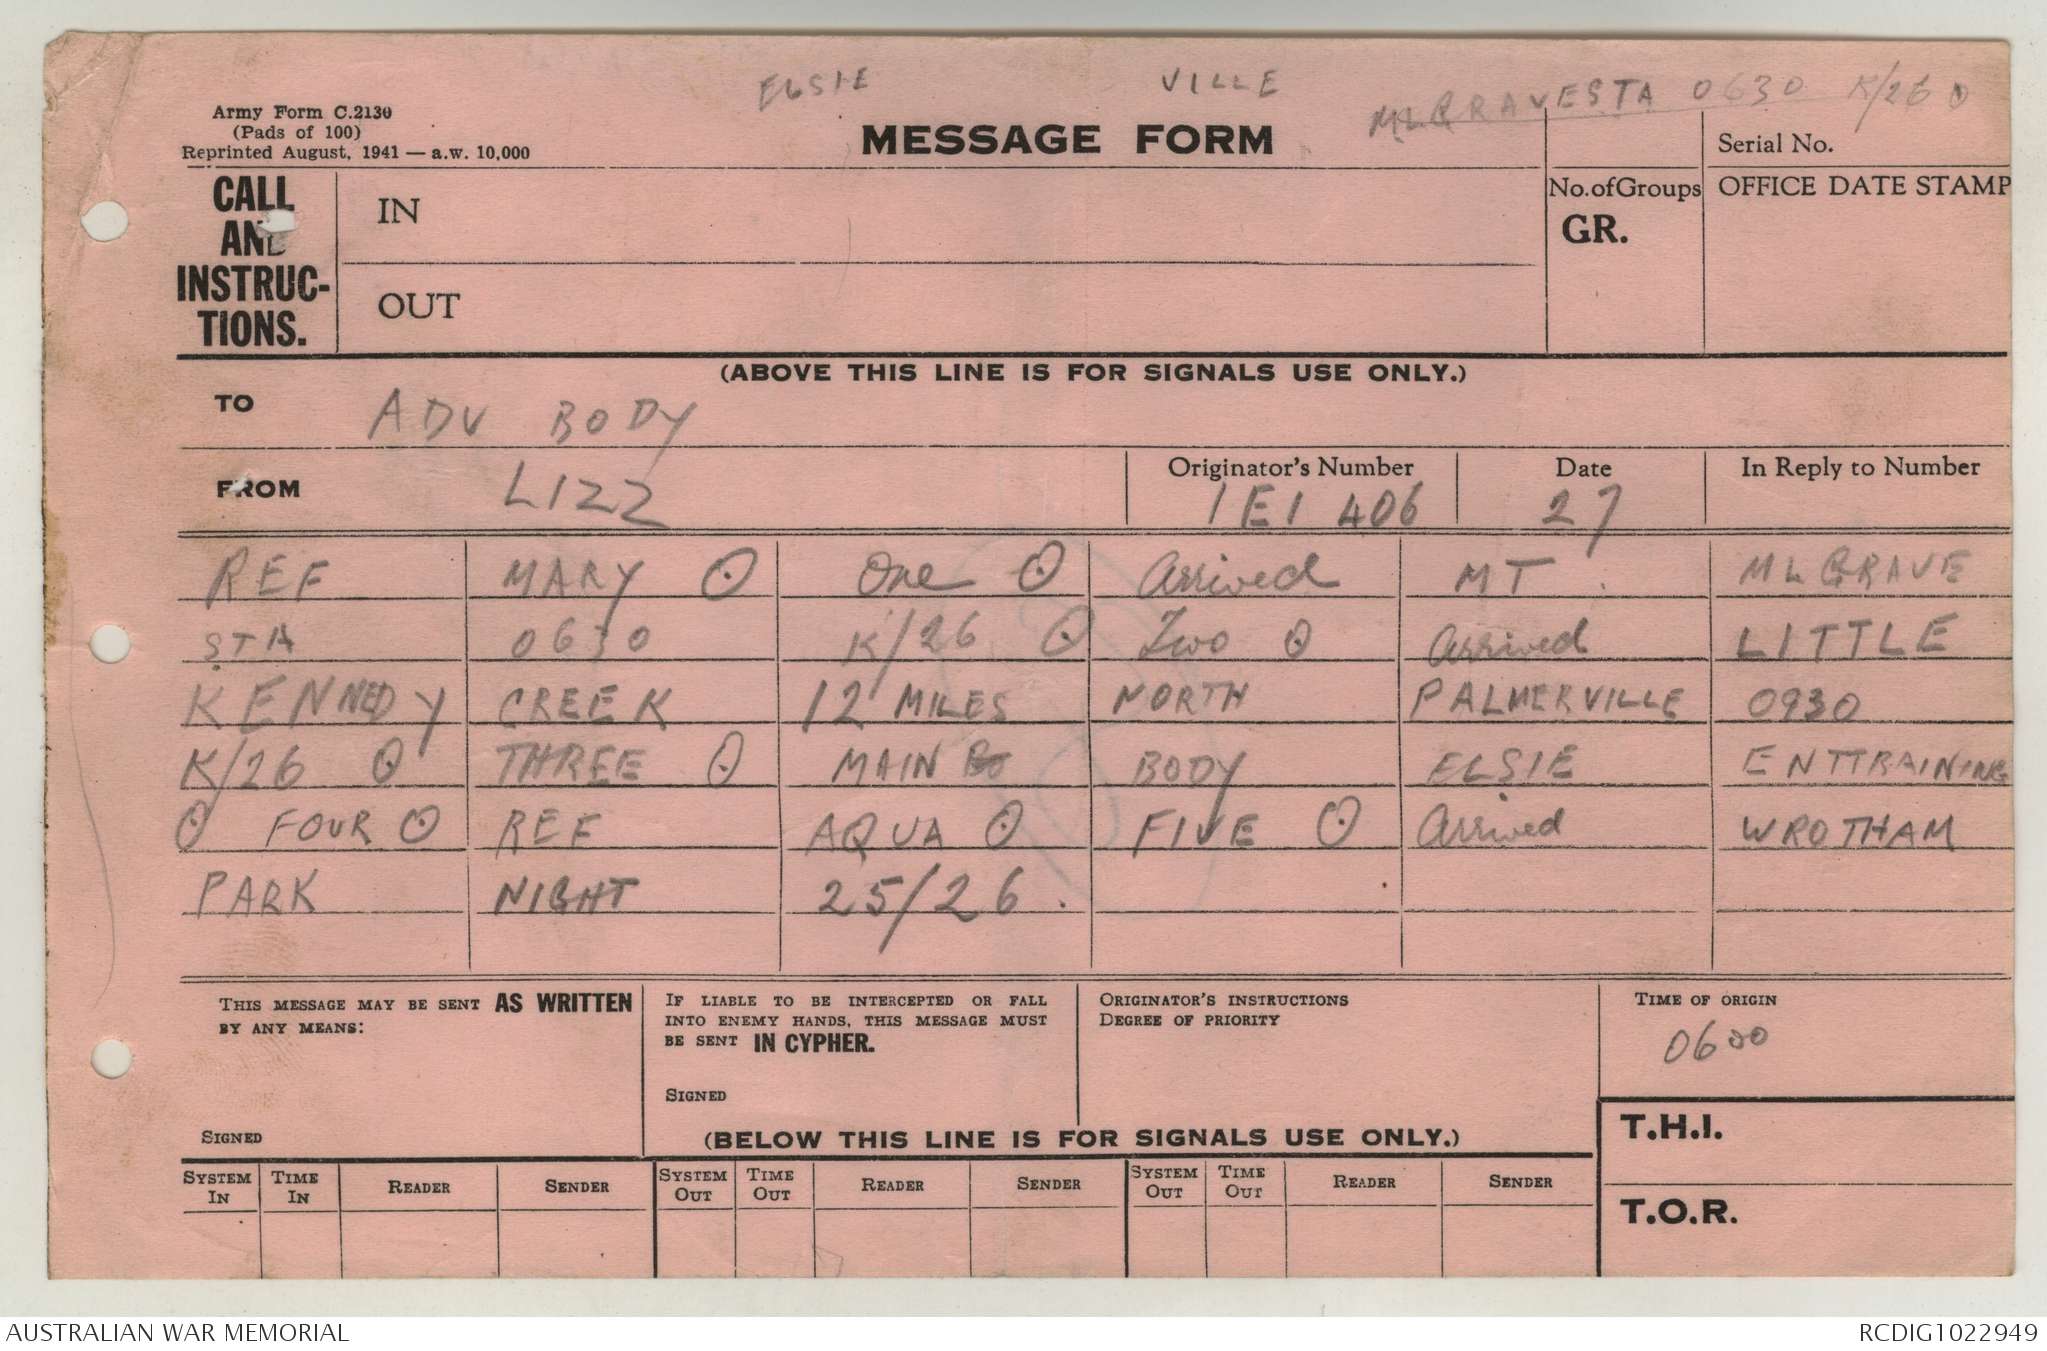 ELSIE VILLE
MLGRAVESTA 0630 K/26
Army Form C.2130
(Pads of 100)
Reprinted August, 1941 — a.w. 10,000
MESSAGE FORM
Serial No.
CALL AND INSTRUC-TIONS.
IN
No. of Groups
GR.
OFFICE DATE STAMP
OUT
(ABOVE THIS LINE IS FOR SIGNALS USE ONLY.)
TO ADV BODY
FROM LIZZ
Originator's Number
1E1 406
Date
27
In Reply to Number
REF MARY ⊙ One ⊙ Arrived MT. MLGRAVE
STA 0630 K/26 ⊙ Two ⊙ Arrived LITTLE
KENNEDY CREEK 12 MILES NORTH PALMERVILLE 0930
K/26 ⊙ THREE ⊙ MAIN BODY ELSIE ENTTRAINING
⊙ FOUR ⊙ REF AQUA ⊙ FIVE ⊙ Arrived WROTHAM
PARK NIGHT 25/26.
THIS MESSAGE MAY BE SENT AS WRITTEN
BY ANY MEANS:
SIGNED
IF LIABLE TO BE INTERCEPTED OR FALL
INTO ENEMY HANDS, THIS MESSAGE MUST
BE SENT IN CYPHER.
SIGNED
ORIGINATOR'S INSTRUCTIONS
DEGREE OF PRIORITY
TIME OF ORIGIN
0600
(BELOW THIS LINE IS FOR SIGNALS USE ONLY.)
T.H.I.
T.O.R.
SYSTEM IN TIME IN READER SENDER SYSTEM OUT TIME OUT READER SENDER SYSTEM OUT TIME OUT READER SENDER
AUSTRALIAN WAR MEMORIAL RCDIG1022949